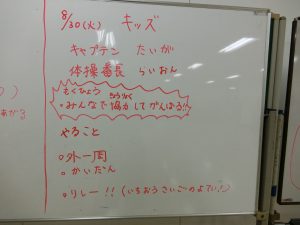 8/30(火) キッズ
キャプテン たいが
体操番長 らいおん
もくひょう
きょうりょく
。みんなで協力してがんばる!!
やること
。外一周
。かいだん
。リレー!!(いちおうさいごのよてい!)